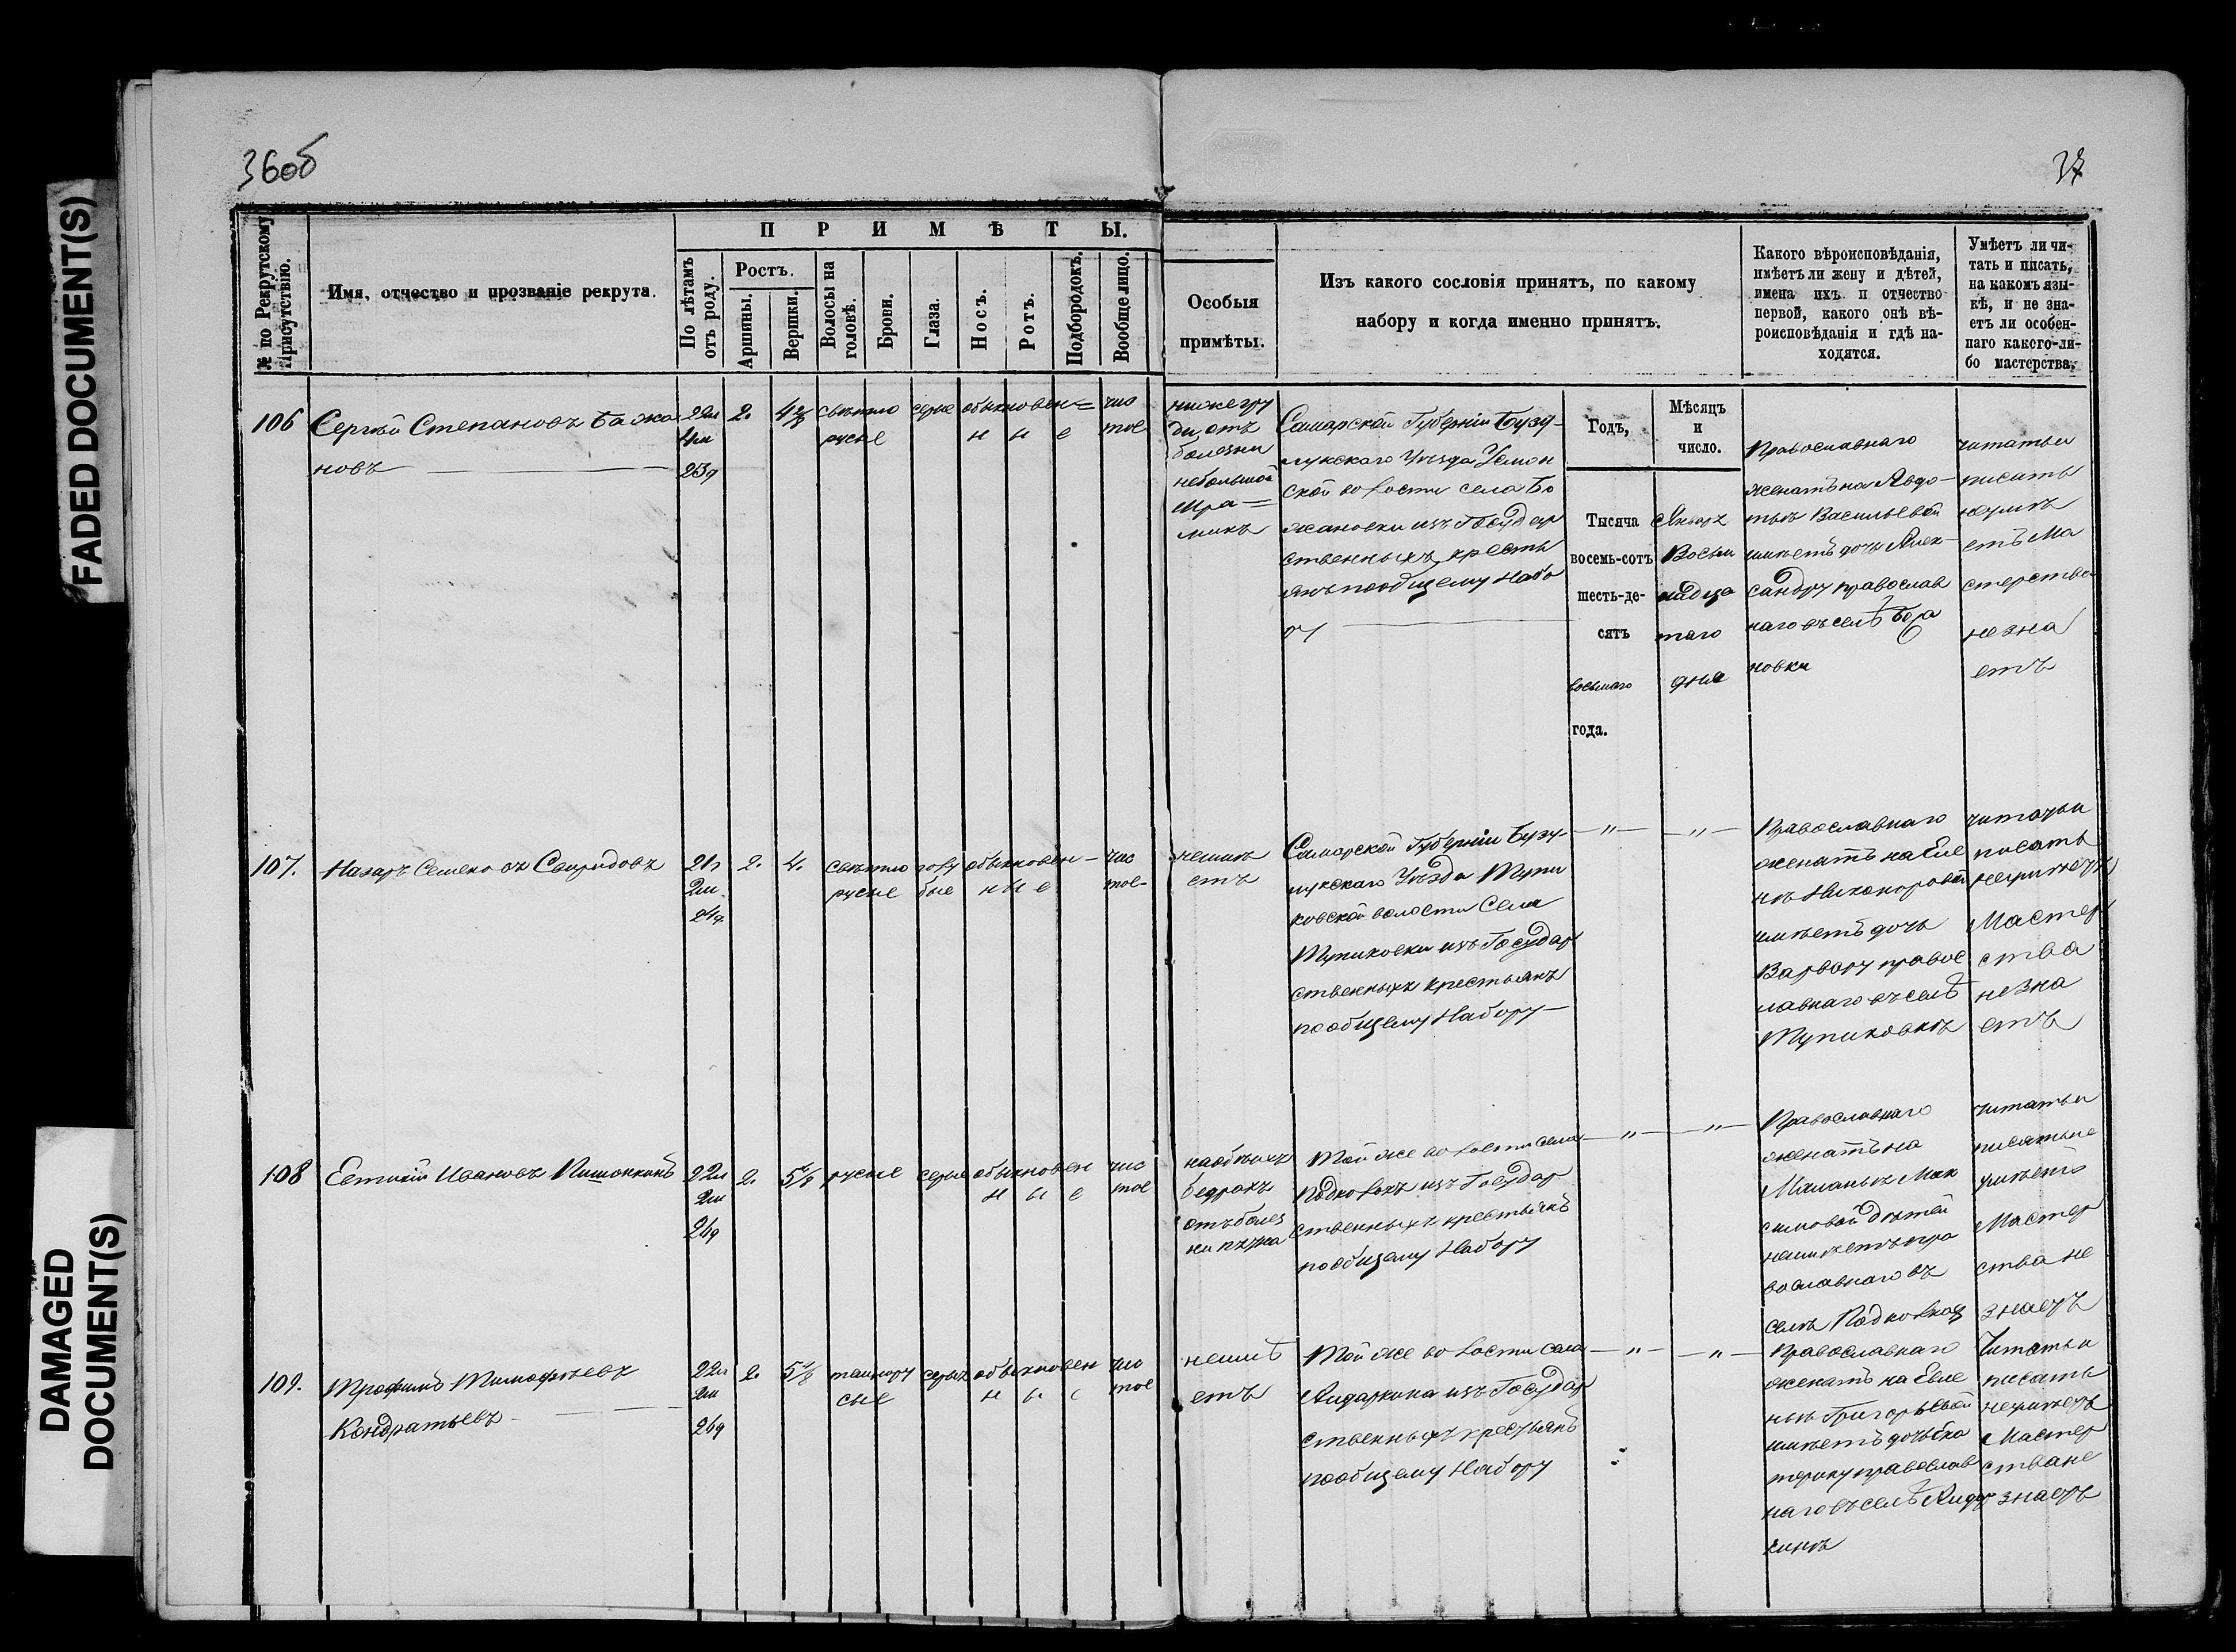 FADED DOCUMENT(S)
DAMAGED
DOCUMENT(S)
36об
37
№ по Рекрутскому
Присутствію.
Имя, отчество и прозваніе рекрута.
ПРИМѢТЫ.
По лѣтамъ
отъ роду.
Ростъ.
Аршины.
Вершки.
Волосы на
головѣ.
Брови.
Глаза.
Носъ.
Ротъ.
Подбородокъ.
Вообще лицо.
Особыя
примѣты.
Изъ какого сословія принятъ, по какому
набору и когда именно принятъ.
Какого вѣроисповѣданія,
имѣетъ ли жену и дѣтей,
имена ихъ и отчество
первой, какого онѣ вѣ-
роисповѣданія и гдѣ на-
ходятся.
Умѣетъ ли чи-
тать и писать,
на какомъ язы-
кѣ, и не зна-
етъ ли особен-
наго какого-ли-
бо мастерства.
106
Сергѣй Степановъ Бажа
новъ
22л
4м
23д
2.
4 2/8
свѣтло
русые
серые
обыкновен=
ные
чис
тое
ниже гру
ди отъ
болезни
небольшой
шра=
микъ
Самарской Губерніи Бузу-
лукскаго Уѣзда
ской волости села Бо
жановки изъ Государ
ственныхъ кресть
янъ по общему набо
ру
Годъ,
Мѣсяцъ
и
число.
Тысяча
восемь-сотъ
шесть-де-
сятъ
восьмаго
года.
Январь
Восем
надца
таго
дня
Православнаго
женатъ на Авдо-
тьѣ Васильевой
имѣетъ дочь Алек-
сандру православ
наго въ селѣ Божа
новки
читать и
писать
не умѣ
етъ Ма
стерства
не зна
етъ
107.
Назаръ Семеновъ Свиридовъ
21л
2м
24д
2.
4.
свѣтло
русые
голу
бые
обыкновен-
ные
чис
тое-
неимѣ
етъ
Самарской Губерніи Бузу-
лукскаго Уѣзда Тупи
ковской волости Села
Тупиковки изъ Государ
ственныхъ крестьянъ
по общему Набору-
-"-
-"-
Православнаго
женатъ на Еле
нѣ Никаноровой
имѣетъ дочь
Варвару правос
лавнаго въ селѣ
Тупиковкѣ
читать и
писать
неумѣетъ
Мастер
ства
не зна
етъ
108
Евтихій Ивановъ Пишонкинъ
22л
2м
26д
2.
5 1/8
русые
серые
обыкновен
ные
чис
тое
на обѣихъ
бедрахъ
отъ болез
ни пятна
Той же волости села
Подколокъ изъ Государ
ственныхъ крестьянъ
по общему Набору
-"-
-"-
Православнаго
женатъ на
Маланьѣ Мак
симовой дѣтей
неимѣетъ пра
вославнаго въ
селѣ
читать и
писать не
умѣетъ
Мастер
ства не
знаетъ
109.
Трофимъ Тимофѣевъ
Кондратьевъ
22л
2м
26д
2.
5 1/8
темнору
сые
серые
обыкновен
ные
чис
тое
неимѣ
етъ
Той же волости села
Андаркина изъ Государ
ственныхъ крестьянъ
по общему Набору
-"-
-"-
Православнаго
женатъ на Еле
нѣ Григорьевой
имѣетъ дочь Ека
терину православ
наго въ селѣ Андар
кинѣ
Читать и
писать
неумѣетъ
Мастер
ства не
знаетъ